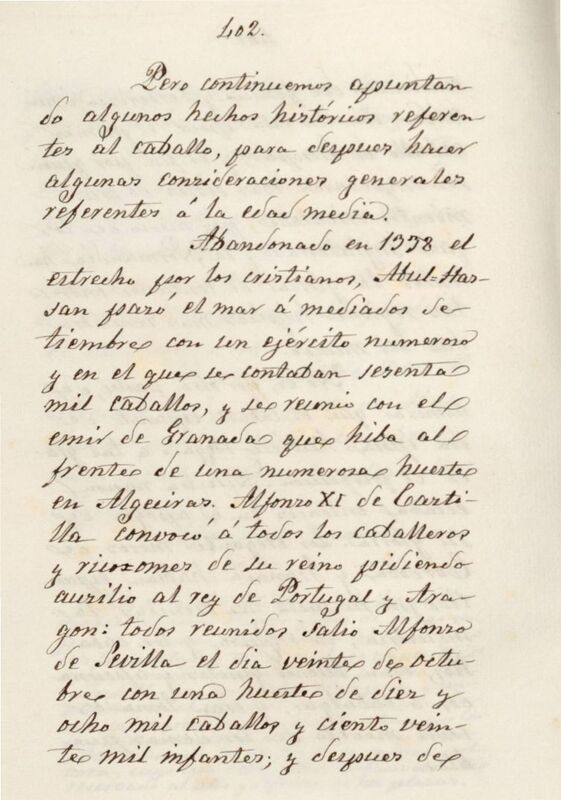 402.
Pero continuemos apuntan
do algunos hechos históricos referen
tes al caballo, para despues hacer
algunas consideraciones generales
referentes á la edad media.
Abandonado en 1338 el
estrecho por los cristianos, Abul=Has-
san pasó el mar á mediados se-
tiembre con un ejército numeroso
y en el que se contaban sesenta
mil caballos, y se reunio con el
emir de Granada que hiba al
frente de una numerosa hueste
en Algeciras. Alfonso XI de Casti-
lla convocó á todos los caballeros
y ricosomes de su reino pidiendo
auxilio al rey de Portugal y Ara-
gon: todos reunidos salio Alfonso
de Sevilla el dia veinte de octu-
bre con una hueste de diez y
ocho mil caballos y ciento vein-
te mil infantes; y despues de